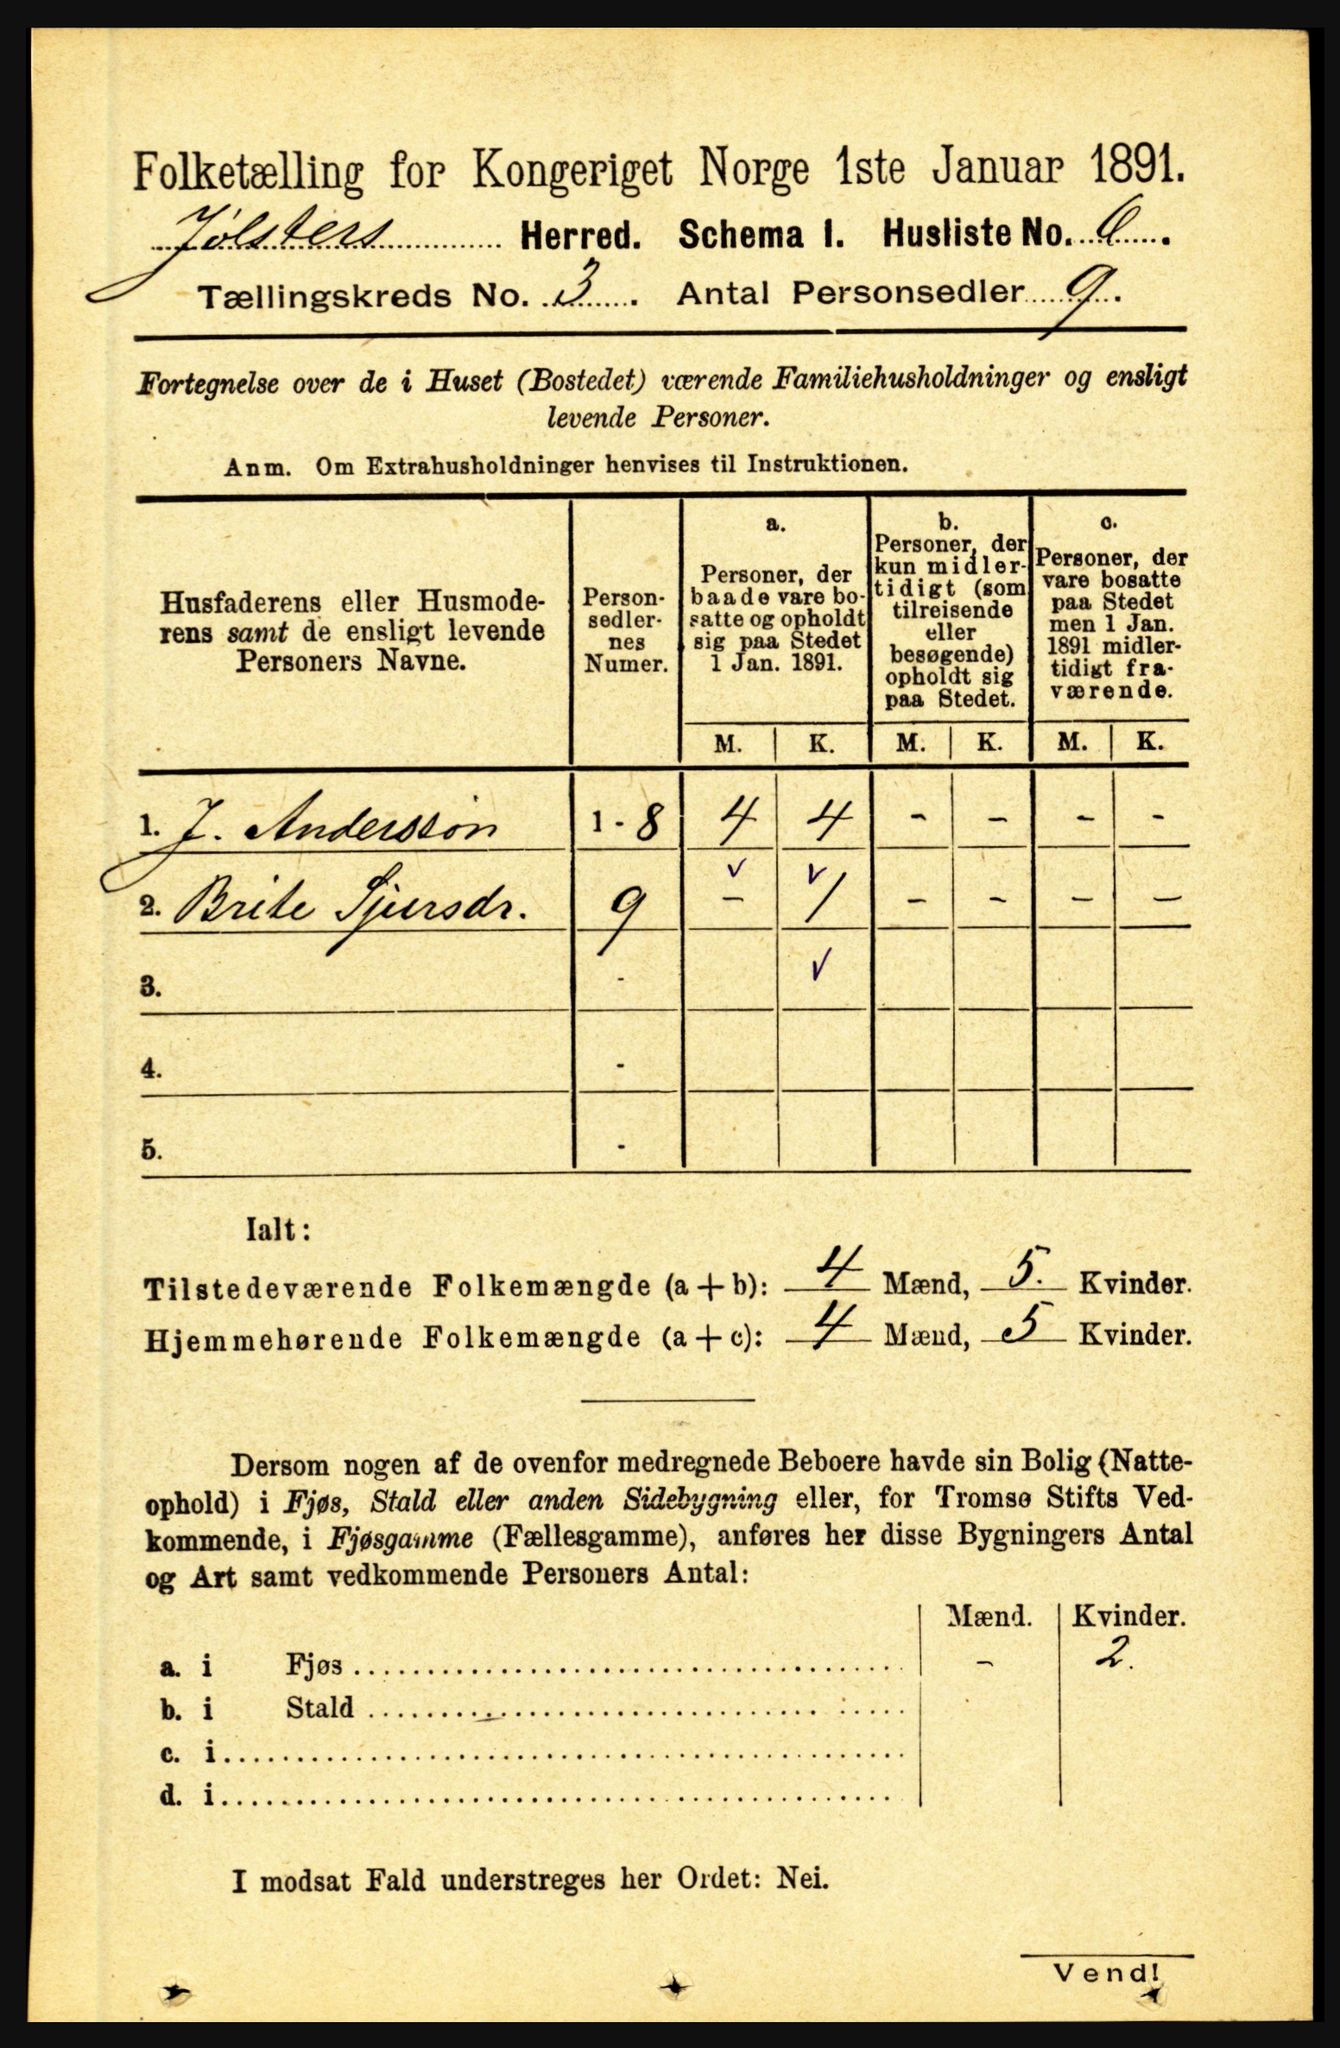 Folketælling for Kongeriget Norge 1ste Januar 1891.
Jølsters Herred. Schema I. Husliste No. 6.
Tællingskreds No. 3. Antal Personsedler 9.
Fortegnelse over de i Huset (Bostedet) værende Familiehusholdninger og ensligt
levende Personer.
Anm. Om Extrahusholdninger henvises til Instruktionen.
Husfaderens eller Husmode-
rens samt de ensligt levende
Personers Navne.
Person-
sedler-
nes
Numer.
a.
Personer, der
baade vare bo-
satte og opholdt
sig paa Stedet
1 Jan. 1891.
b.
Personer, der
kun midler-
tidigt (som
tilreisende
eller
besøgende)
opholdt sig
paa Stedet.
c.
Personer, der
vare bosatte
paa Stedet
men 1 Jan.
1891 midler-
tidigt fra-
værende.
M. K. M. K. M. K.
1. J. Anderssøn 1 - 8 4 4 - - - -
2. Brite Sjursdr. 9 - 1 - - - -
3. -
4. -
5. -
Ialt:
Tilstedeværende Folkemængde (a + b): 4 Mænd, 5. Kvinder.
Hjemmehørende Folkemængde (a + c): 4 Mænd, 5 Kvinder.
Dersom nogen af de ovenfor medregnede Beboere havde sin Bolig (Natte-
ophold) i Fjøs, Stald eller anden Sidebygning eller, for Tromsø Stifts Ved-
kommende, i Fjøsgamme (Fællesgamme), anføres her disse Bygningers Antal
og Art samt vedkommende Personers Antal:
Mænd. Kvinder.
a. i Fjøs - 2.
b. i Stald
c. i
d. i
I modsat Fald understreges her Ordet: Nei.
Vend!